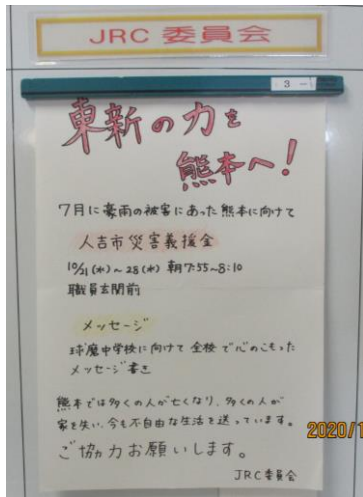 JRC 委員会
3 -
東新の力を
熊本へ!
7月に豪雨の被害にあった熊本に向けて
人吉市災害義援金
10/21(水)~28(水) 朝7:55~8:10
職員玄関前
メッセージ
球磨中学校に向けて全校で心のこもった
メッセージ書き
熊本では多くの人が亡くなり、多くの人が
家を失い、今も不自由な生活を送っています。
ご協力お願いします。
JRC委員会
2020/1